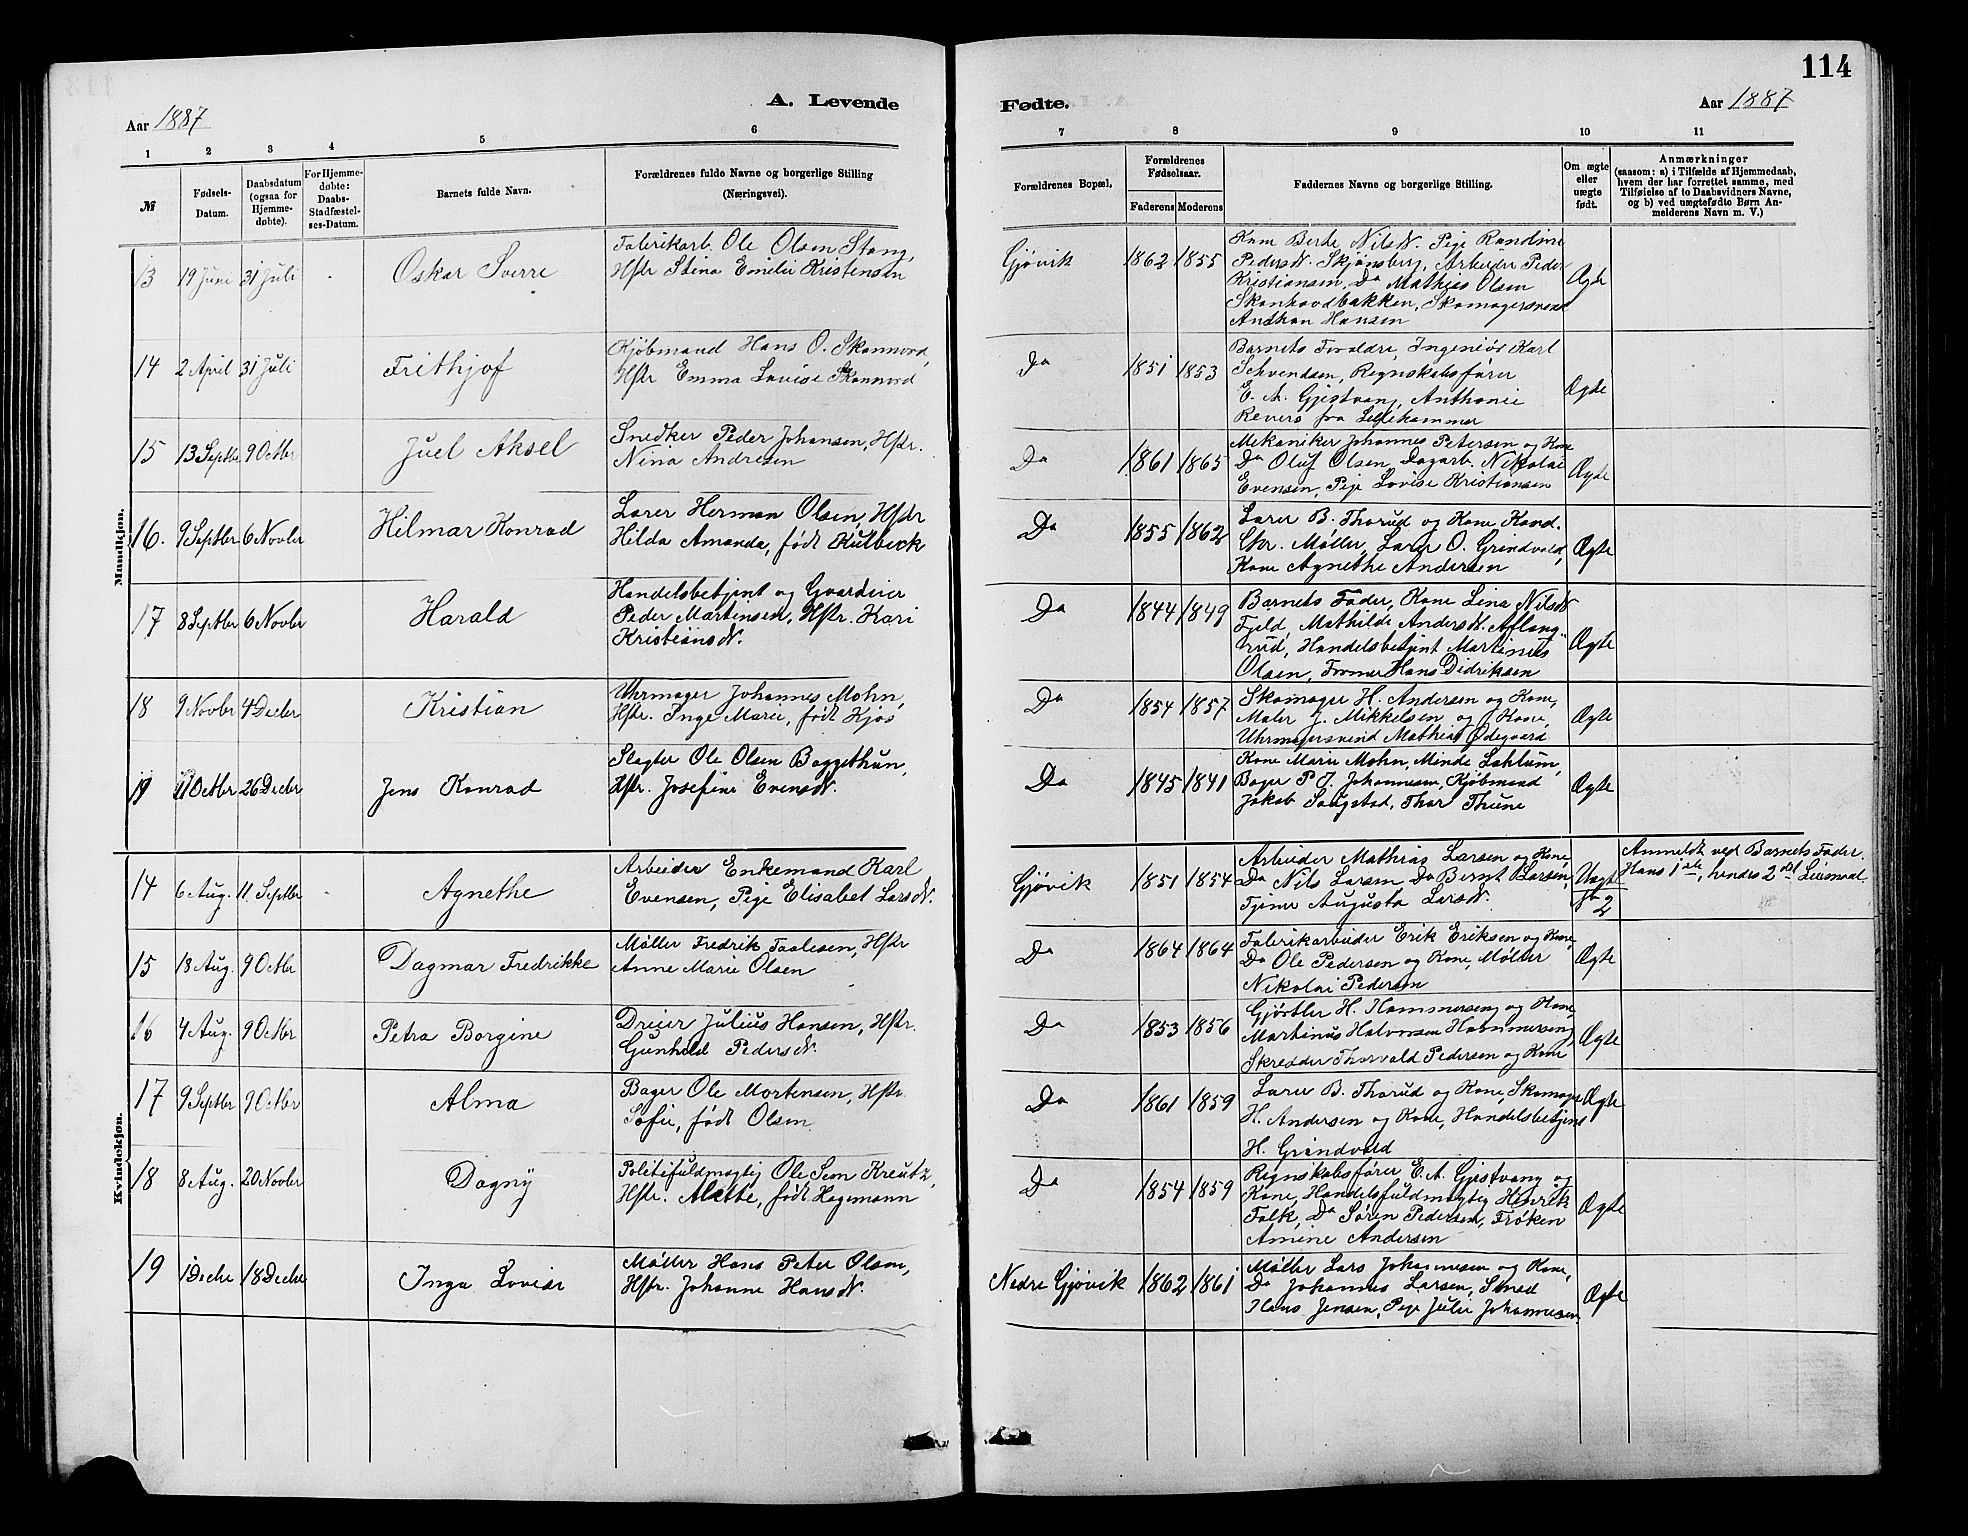 114
A. Levende
Fødte.
Aar 1887
Aar 1887
1 2 3 4 5 6 7 8 9 10 11
№
Fødsels-
Datum.
Daabsdatum
(ogsaa for
Hjemme-
døbte).
For Hjemme-
døbte:
Daabs-
Stadfæstel-
ses-Datum.
Barnets fulde Navn.
Forældrenes fulde Navne og borgerlige Stilling
(Næringsvei).
Forældrenes Bopæl.
Forældrenes
Fødselsaar.
Faderens Moderens
Faddernes Navne og borgerlige Stilling.
Om ægte
eller
uægte
født.
Anmærkninger
(saasom: a) i Tilfælde af Hjemmedaab,
hvem der har forrettet samme, med
Tilføielse af to Daabsvidners Navne,
og b) ved uægtefødte Børn An-
melderens Navn m. V.)
Mandkjøn.
13 19 Juni 31 Juli - Oskar Sverre
Fabrikarb. Ole Olsen Stang,
Hstr Stina Emilie Kristensen
Gjøvik 1862 1855
Kone Berte Nilsd. Pige Randine
Pedersd. Skjønsberg, Arbeider Peder
Kristiansen, Do Mathias Olsen
Skonhovdbakken, Skomagersvend
Anthon Hansen
Ægte
14 2 April 31 Juli Frithjof
Kjøbmand Hans O. Skonnord,
Hstr Emma Lovise Skonnord
Do 1851 1853
Barnets Forældre, Ingeniør Karl
Schvendsen, Regnskabsfører
E. A. Gjestvang, Anthonie
Revers fra Lillehammer
Ægte
15 13 Septbr 9 Octbr Juel Aksel
Snedker Peder Johansen, Hstr.
Nina Andresen
Do 1861 1865
Mekaniker Johannes Petersen og Kone
Do Oluf Olsen, Dagarb. Nikolai
Evensen, Pige Lovise Kristiansen
Ægte
16. 9 Septbr 6 Novbr Hilmar Konrad
Lærer Herman Olsen, Hstr
Hilda Amanda, født Kulbeck
Do 1855 1862
Lærer B. Thorud og Kone Kand.
Chr. Møller, Lærer O. Grindvold,
Kone Agnethe Andersen
Ægte
17 8 Septbr 6 Novbr Harald
Handelsbetjent og Gvardeier
Peder Martinsen, Hstr. Kari
Kristiansd.
Do 1844 1849
Barnets Fader, Kone Lina Nilsd.
Fjeld, Mathilde Andersd. Aflang-
rud, Handelsbetjent Martinus
Olsen, Former Hans Didriksen
Ægte
18 9 Novbr 4 Decbr Kristian
Uhrmager Johannes Mohn,
Hstr. Inge Marie, født Hjøs
Do 1854 1857
Skomager H. Andersen og Kone,
Maler J. Mikkelsen og Kone,
Uhrmagersvend Mathias Ødegaard
Ægte
19 11 Octbr 26 Decbr Jens Konrad
Slagter Ole Olsen Baggethun,
Hstr. Josefine Evensd.
Do 1845 1841
Kone Marie Mohn, Minde Lahlum,
Bager P. J. Johannesen, Kjøbmand
Jakob Saugstad, Thor Thune
Ægte
Kvindekjøn.
14 6 Aug. 11 Septbr - Agnethe
Arbeider Enkemand Karl
Evensen, Pige Elisabet Larsd.
Gjøvik 1851 1854
Arbeider Mathias Larsen og Kone,
Do Nils Larsen Do Bernt Larsen,
Tjener Augusta Larsd.
Uægte
2
Anmeldt ved Barnets Fader.
Hans 1ste, hendes 2det Leiermaal
15 18 Aug. 9 Octbr Dagmar Fredrikke
Møller Fredrik Taalesen, Hstr
Anne Marie Olsen
Do 1864 1864
Fabrikarbeider Erik Eriksen og Kone,
Do Ole Pedersen og Kone, Møller
Nikolai Pedersen
Ægte
16 4 Aug. 9 Octbr Petra Borgine
Dreier Julius Hansen, Hstr.
Gunhild Pedersd.
Do 1853 1856
Gjørtler H. Hammerseng og Kone,
Martinus Halvorsen Hammerseng,
Skredder Thorvald Pedersen og Kone
Ægte
17 9 Septbr 9 Octbr Alma
Bager Ole Mortensen, Hstr.
Sofie, født Olsen
Do 1861 1859
Lærer B. Thorud og Kone, Skomager
H. Andersen og Kone, Handelsbetjent
H. Grøndvold
Ægte
18 8 Aug. 20 Novbr Dagny
Politifuldmægtig Ole Sem Kreutz,
Hstr. Alette, født Hagemann
Do 1854 1859
Regnskabsfører E. A. Gjestvang og
Kone, Handelsfuldmægtig Henrik
Falk, Do Søren Pedersen, Frøken
Amine Andersen
Ægte
19 1 Decbr 18 Decbr Inga Lovise
Møller Hans Peter Olsen,
Hstr. Johanne Hansd.
Nedre Gjøvik 1862 1861
Møller Lars Johannesen og Kone,
Do Johannes Larsen, Smed
Hans Jensen, Pige Julie Johannesen
Ægte